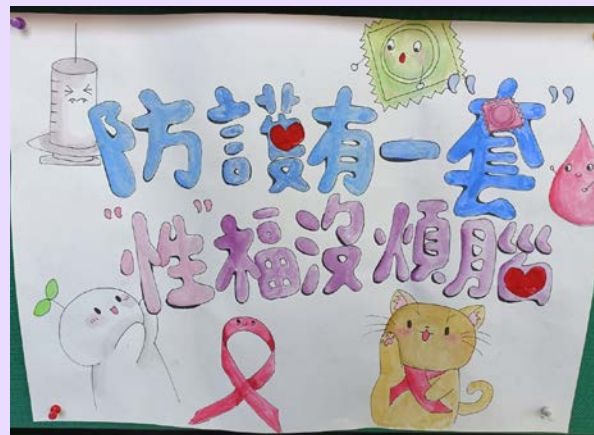 防護有一"套"
"性"福沒煩腦